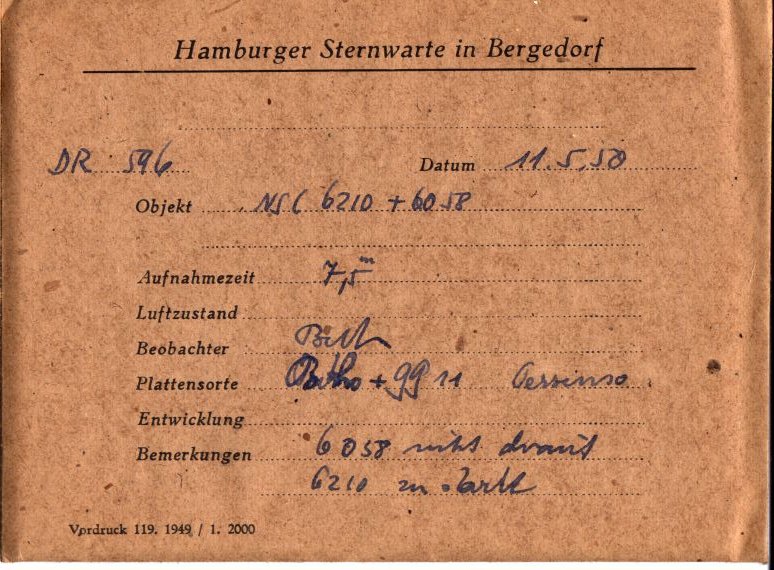 Hamburger Sternwarte in Bergedorf
DR 596 Datum 11.5.50
Objekt NGC 6210 + 6058
Aufnahmezeit 7,5 m
Luftzustand
Beobachter
Plattensorte + gg 11
Entwicklung
Bemerkungen 6058 nicht drauf
6210 zu stark
Vordruck 119. 1949 / 1. 2000